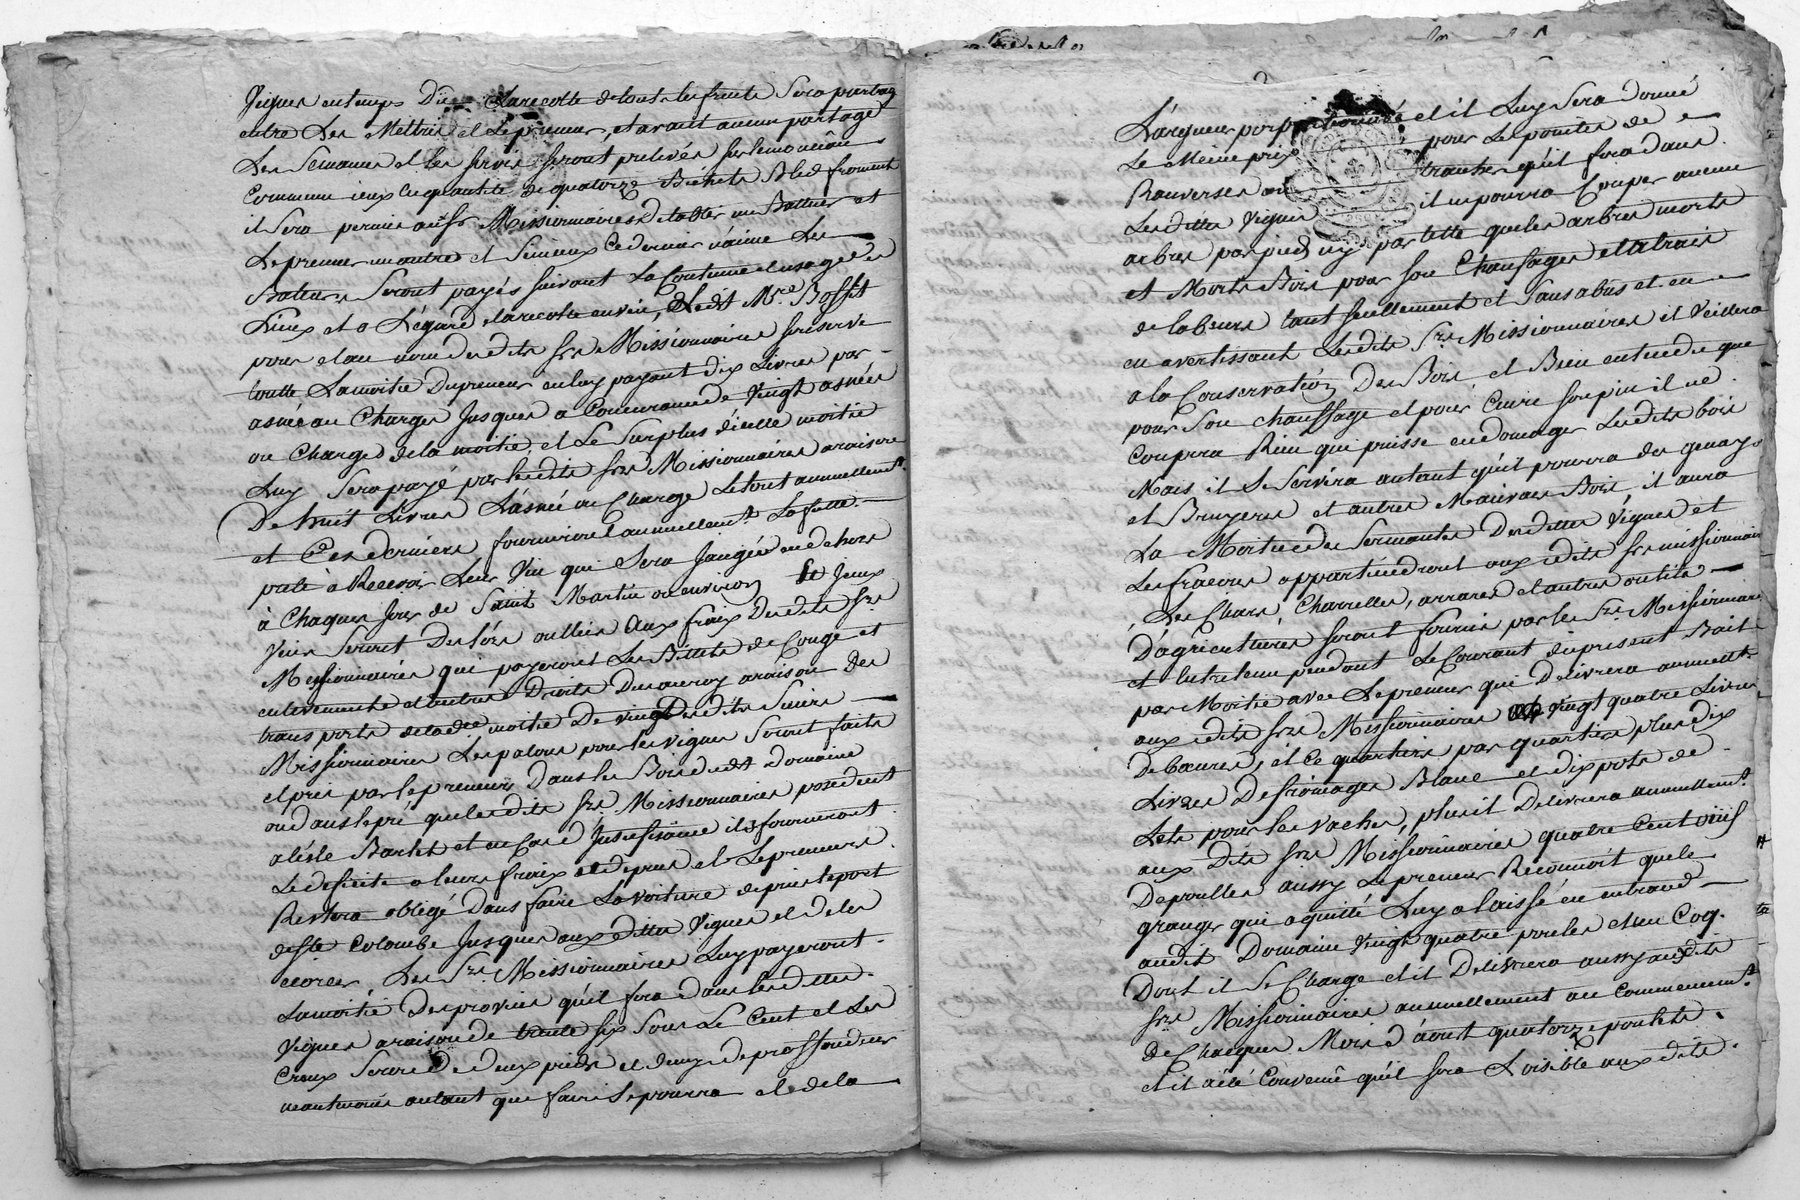 Vignes en temps Dû La recolte de touts les fruits Sera partagé
entre Les Mettres et Le preneur, et avant aucun partagé
Les Semances et les servis seront prelevés sur le monceau
Commun jeux en quantité de quatorze Bichets Bled froment
il Sera permis auxds Missionnaires d'Etablir un Batteur et
Le preneur un autre et Si mieux Ce dernier n'aime Les
Bateurs Seront payés suivant La Coutume et usage des
Lieux et a L'égard de la recolte en vin, Ledit Mre Bosset
pour et au nom desdits Srs Missionnaires se reserve
toutte La moitié du preneur en luy payant dix Livres par
asnée ou Charge Jusques a Concurance de Vingt asnées
ou Charges de la moitié, et Le Surplus d'icelle moitié
Luy Sera payé par lesdits Srs Missionnaires a raison
De huit Livres L'asnée ou Charge Le tout annuellemt
et Ces derniers fourniront annuellemt La futte
prete à Recevoir Leur Vin qui Sera Jaugée en dehors
à Chaques fêtes de Saint Martin ou environ Les Jeux
Vins Seront Des lors oulliés aux fraix Desdits Srs
Missionnaires qui payeront Les Billets de Congé et
enlevements et autres Droits Dus au roy a raison des
transports de ladte moitié De vingt desdits Sieurs
Missionnaires Les palons pour les vignes Seront faits
et pris par le preneur Dans les Bois dudt Domaine
ou dans le pré que lesdits Srs Missionnaires possedent
a l'isle Barlet et en Cas d'Insufisance ils fourniront
Le deficite a leurs fraix et depens et Le preneur
Restera obligé Dans faire La voiture depuis le port
de Ste Colombe Jusques aux dittes Vignes et de les
Les Srs Missionnaires Luy payeront
La moitié Des provins qu'il fera Dans lesdittes
Vignes a raison de trente six Sous Le Cent et Les
Creux Seront De deux pieds et demy de proffondeur
neantmoins autant que faire Se pourra et de la
L'argueur porportionnée et il Luy Sera Donné
Le Même prix pour Le pointes de
Ranverses ou tranches qu'il fera dans
Lesdittes Vignes il ne pourra Couper aucuns
arbres par pied ny par tette que les arbres morts
et Morts Bois pour son Chaufages et attrais
de labeurs tant seullement et Sans abus et en
en avertissant Lesdits Srs Missionnaires il Veillera
a la Conservation Des Bois et Bien entendu que
pour Son chauffage et pour Cuire son pin il ne
Couprra Rien qui puisse endomager Lesdits bois
Mais il Se Servira autant qu'il pourra des genays
et Bruyeres et autres Mauvais Bois il aura
La Moitié des Sermantes Desdittes Vignes et
Les fracons appartiendront auxdits Srs missionnaires
Les Chars, Charrettes, arrares et autres outils
D'agricultures seront fournis par les Srs Missionnaires
et Entretenu pendant Le Courant du present Bail
par Moitié avec Le preneur qui Delivrera annuellt
auxdits Srs Missionnaires vingt quatre Livres
De beures, et Ce quartiers par quartiers plus dix
Livres De fromages Blanc et dix pots de
Lets pour les vaches, plus il Delivrera annuellemt
aux dits Srs Missionnaires quatre Cent oeufs
De poulles aussy Le preneur Reconnoit que le
granger qui a quitté Luy a laissé en entrand
audit Domaine Vingt quatre poules et un Coq.
Dont il Se Charge et il Delivrera aussy auxdits
Srs Missionnaires annuellement au Commencemt
de Chaques Mois d'aoust quatorze poulets.
Et il a été Convenû qu'il sera Loisible auxdits